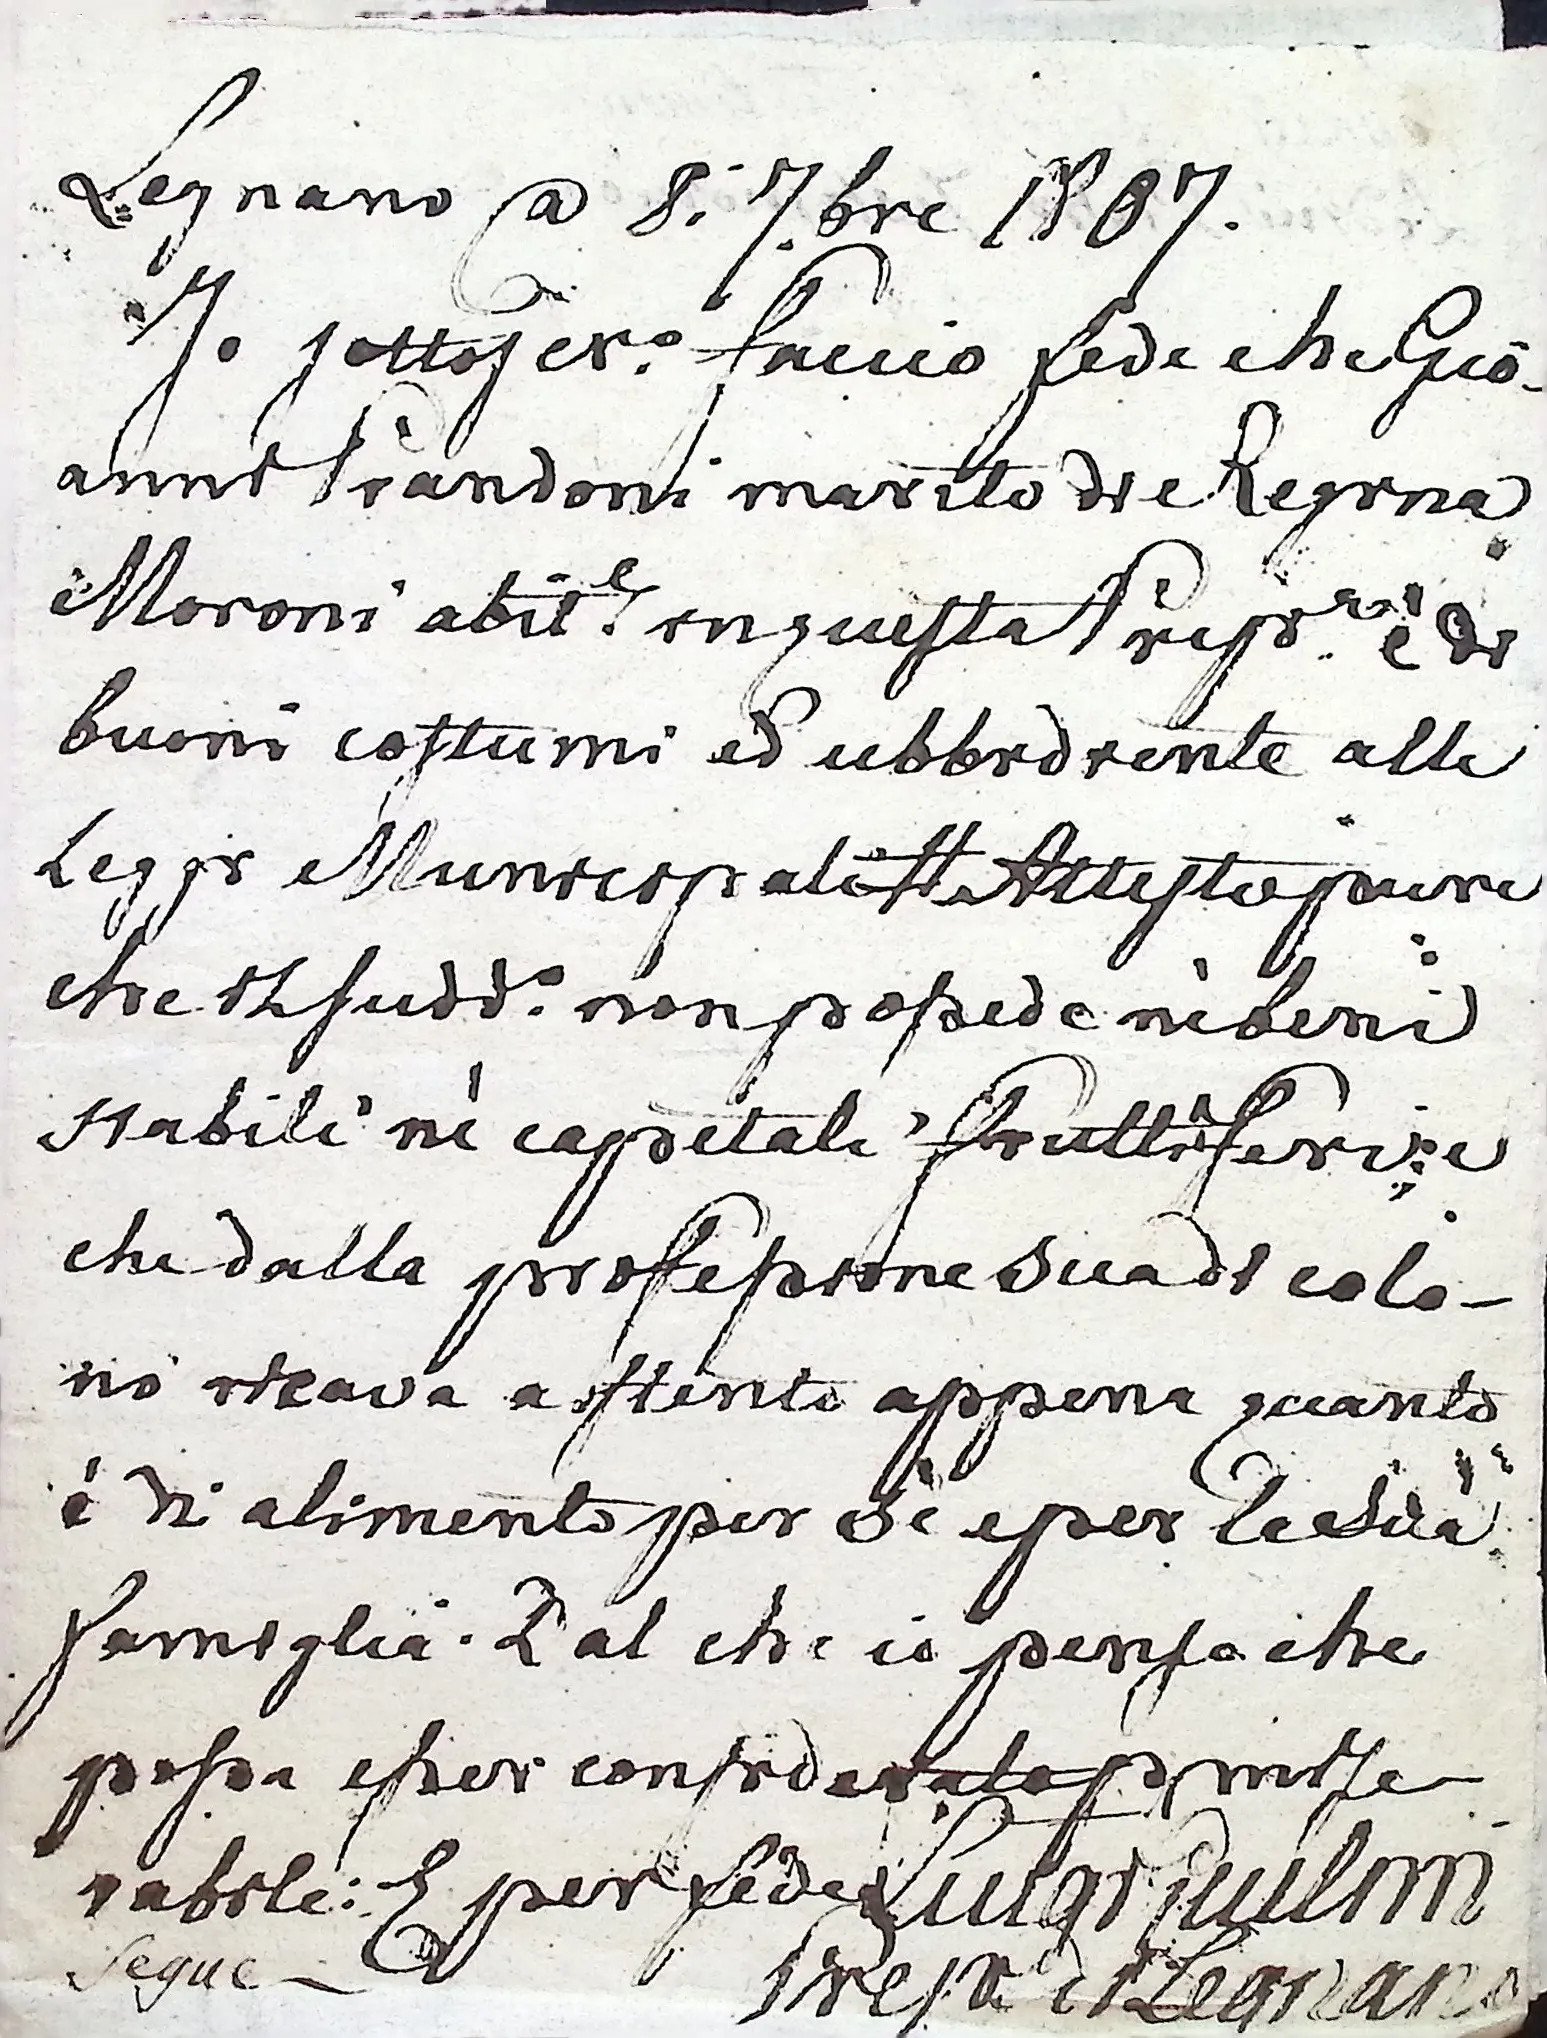 Legnano a 8. 7.bre 1807.
Io sottoscr.o faccio fede che Gio-
anni Piandoni marito di Regina
Moroni abit.e in questa Prep.ra è di
buoni costumi ed ubbidiente alle
Leggi Municipali. Attesto pure
che il sudd.o non possede nè beni
stabili nè capitali fruttiferi; e
che dalla professione sua di colo-
no ricava a stento appena quanto
è di alimento per sè e per la sua
famiglia. Dal che io penso che
possa esser considerato p mise-
rabile: E per fede Luigi
Segue Prep. di Legnano